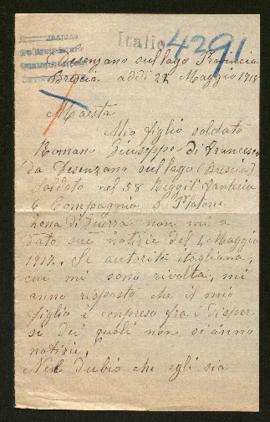 Italie
4291
Desenzano sul Lago Provincia
Brescia addi 22 Maggio 1918
Maestà
Mio figlio soldato
Romano Giuseppe di Francesco
da Desenzano sul Lago (Brescia)
Soldato nel 38 Reggit Fanteria
6 Compagnia Plotone
Zona di Guerra non mi a
dato sue notizie del Maggio
1917. Le autorità itagliana,
cui mi sono rivolta, mi
anno risposto che il mio
figlio è compreso fra i disper
si dei quali non si anno
notizie,
Nel dubio che egli sia